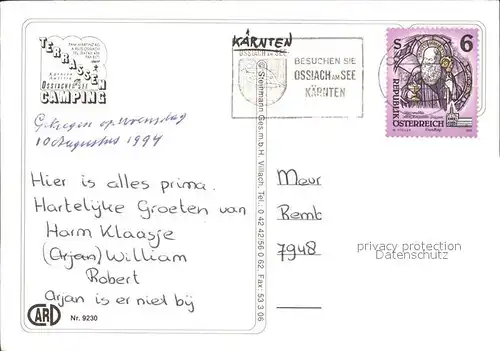 KÄRNTEN
TERRASSEN
OSSIACHER SEE
CAMPING
OSSIACH AM SEE
BESUCHEN SIE
OSSIACH AM SEE
KÄRNTEN
S 6
REPUBLIK
ÖSTERREICH
Gekregen op woensdag
10 Augustus 1994
Hier is alles prima.
Hartelijke Groeten van
Harm Klaasje
(Arjan) William
Robert
Arjan is er niet bij
CARD
Nr. 9230
© Steinmann Ges.m.b.H. Villach, Tel.: 0 42 42/56 0 62, Fax: 53 3 06
Meur
Remb
7948
privacy protection
Datenschutz